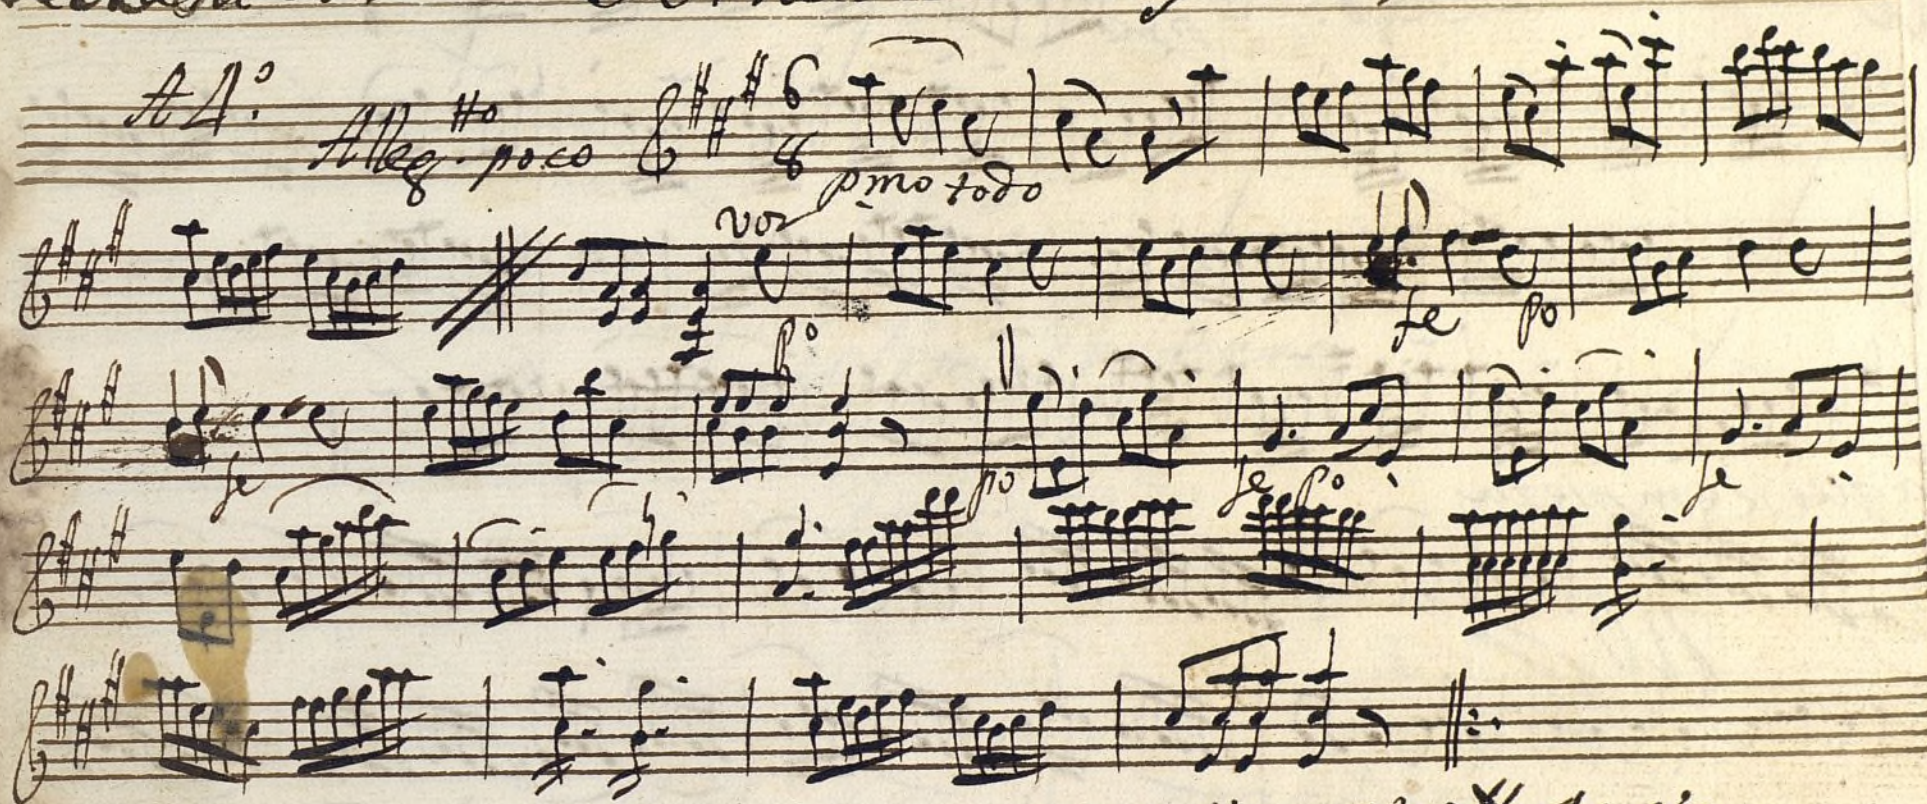 A 4º
Allegtto poco
6
8
pmo todo
voz
fe po
po
fe
po fe po fe